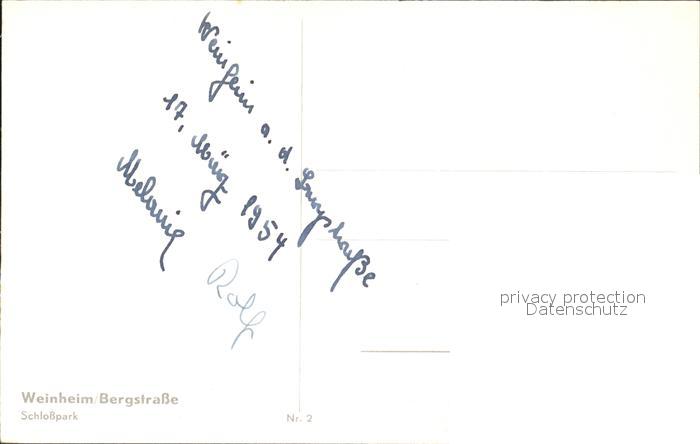 Weinheim a. d. Bergstraße
17. März 1954
Melanie
Rolf
privacy protection
Datenschutz
Weinheim/Bergstraße
Schloßpark
Nr. 2